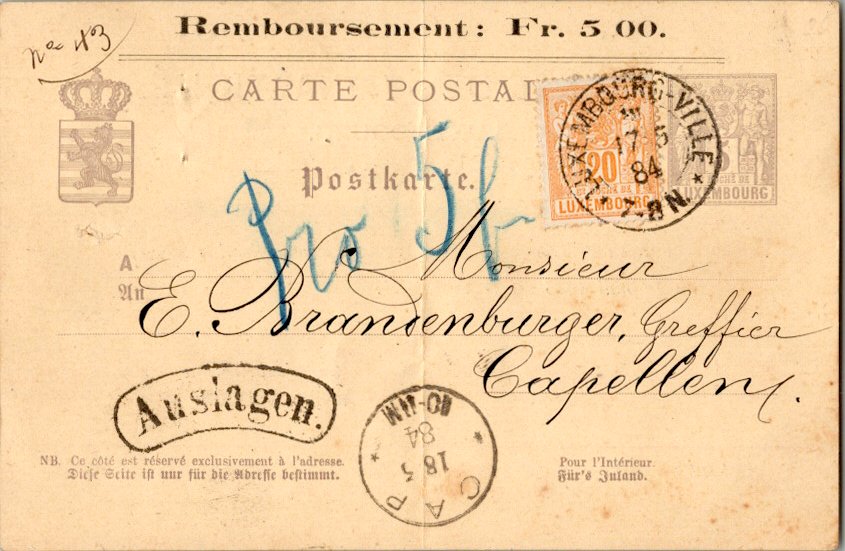 Nº 43
Remboursement: Fr. 5 00.
CARTE POSTAL
Postkarte.
Pro 5 f
20
LUXEMBOURG
LUXEMBOURG-VILLE
17 5
84
7-8 N.
LUXEMBOURG
A
An
Monsieur
E. Brandenburger, Greffier
Capellen
Auslagen.
CAP
18 5
84
NB. Ce côté est réservé exclusivement à l'adresse.
Diese Seite ist nur für die Adresse bestimmt.
Pour l'Intérieur.
Für's Inland.